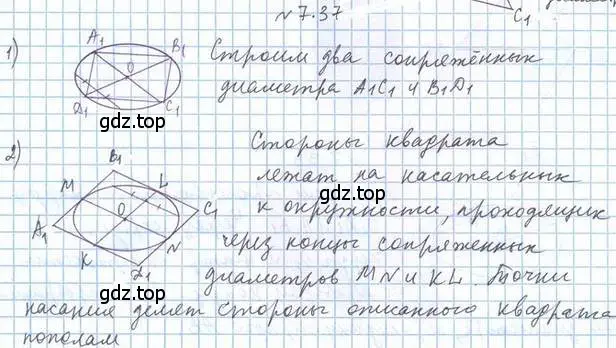 №7.37
1) A₁ B₁ Строим два сопряжённых
O диаметра A₁C₁ и B₁D₁
D₁ C₁
gdz.top
gdz.top
C₁
2) Стороны квадрата
B₁ лежат на касательных
M L
gdz.top
O C₁ к окружности, проходящих
A₁ N через концы сопряженных
K D₁ диаметров MN и KL. Точки
gdz.top
касания делят стороны описанного квадрата
пополам